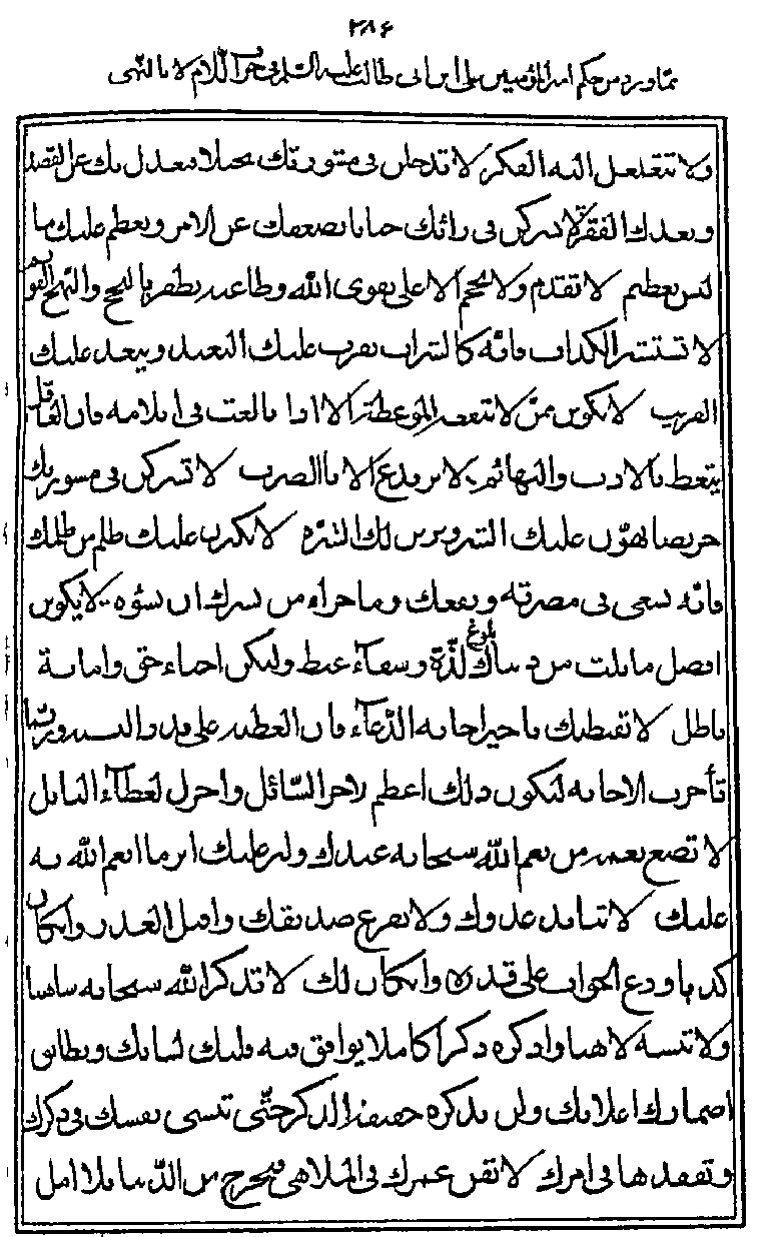 ٣٨۶
مما ورد من حكم امير المؤمنين علي ابن ابي طالب عليه السلم في حرف اللام لا بالنهي
ولا تتغلغل اليه الفكر لا تدخلن في مشورتك بخيلا فيعدل بك عن القصد
ويعدك الفقر لا تشركن في رائك جبانا يضعفك عن الامر ويعظم عليك ما
ليس بعظيم لا تقدم ولا تحجم الا على تقوى الله وطاعته تظفر بالنجح والنهج القويم
لا تستشر الكذاب فانه كالسراب يقرب عليك البعيد ويبعد عليك
القريب لا تكونن ممن لا تنفعه الموعظة الا اذا بالغت في ايلامه فان العاقل
يتعظ بالادب والبهائم لا ترتدع الا بالضرب لا تشركن في مشورتك
حريصا يهون عليك الشر ويزين لك الشره لا يكبرن عليك ظلم من ظلمك
فانه يسعى في مضرته ونفعك وما جزاء من يسرك ان تسؤه لا يكونن
افضل ما نلت من دنياك بلوغ لذة وشفاء غيظ وليكن احياء حق واماتة
باطل لا تقنطنك تاخير اجابة الدعاء فان العطية على قدر النية وربما
تأخرت الاجابة ليكون ذلك اعظم لاجر السائل واجزل لعطاء النايل
لا تضع نعمة من نعم الله سبحانه عندك ولير عليك اثر ما انعم الله به
عليك لا تنابذ عدوك ولا تقرع صديقك واقبل العذر وان كان
كذبا ودع الجواب على قدرة وان كان لك لا تذكر الله سبحانه ساهيا
ولا تنسه لاهيا واذكره ذكرا كاملا يوافق فيه قلبك لسانك ويطابق
اضمارك اعلانك ولن تذكره حقيقة الذكر حتى تنسى نفسك في ذكرك
وتفقدها في امرك لا تفن عمرك في الملاهي فتخرج من الدنيا بلا امل